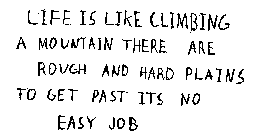 LIFE IS LIKE CLIMBING
A MOUNTAIN THERE ARE
ROUGH AND HARD PLAINS
TO GET PAST ITS NO
EASY JOB